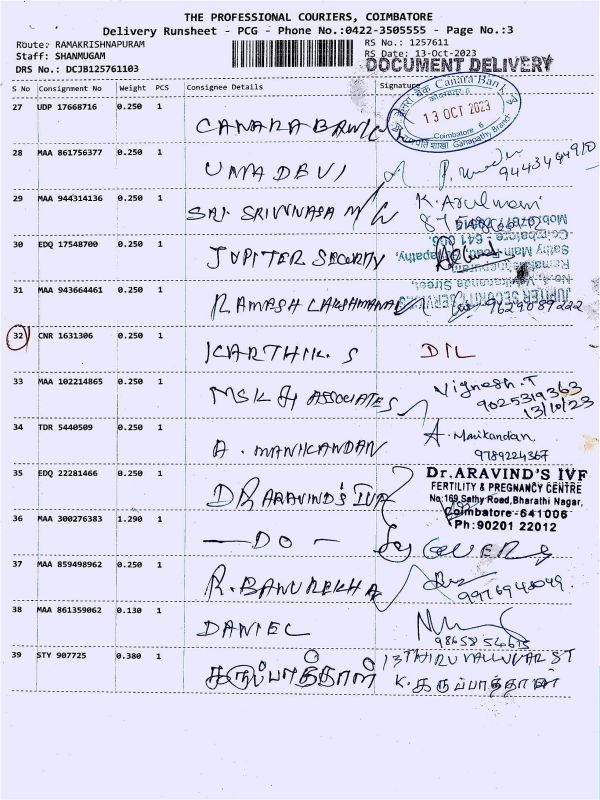 THE PROFESSIONAL COURIERS, COIMBATORE
Delivery Runsheet - PCG - Phone No.:0422-3505555 - Page No.:3
Route: RAMAKRISHNAPURAM
RS No.: 1257611
Staff: SHANMUGAM
RS Date: 13-Oct-2023
DRS No.: DCJB125761103
DOCUMENT DELIVERY
S No Consignment No Weight PCS Consignee Details Signature
27 UDP 17668716 0.250 1 CANARA BANK
Canara Bank
13 OCT 2023
Coimbatore 6
Ganapathy Branch
28 MAA 861756377 0.250 1 UMA DEVI
9443464910
29 MAA 944314136 0.250 1 SRI SRIVINASA M/W K. Arulmani
30 EDQ 17548700 0.250 1 JUPITER SECURITY
JUPITER SECURITY SERVICES
Sathy Main Road, Ganapathy,
Coimbatore - 641 006.
31 MAA 943664461 0.250 1 RAMASH LAKSHMANAN 9629089222
32 CNR 1631306 0.250 1 KARTHIK. S D/L
33 MAA 102214865 0.250 1 MSK & ASSOCIATES Vignesh. T
9025319363
13/10/23
34 TDR 5440509 0.250 1 A. MANIKANDAN A. Manikandan
9789224367
35 EDQ 22281466 0.250 1 DR ARAVIND'S IVF
Dr.ARAVIND'S IVF
FERTILITY & PREGNANCY CENTRE
No:169,Sathy Road,Bharathi Nagar,
Coimbatore-641006
Ph:90201 22012
36 MAA 300276383 1.290 1 — DO —
37 MAA 859498962 0.250 1 R. BANUREKHA
38 MAA 861359062 0.130 1 DANIEL
39 STY 907725 0.380 1 கருப்பாத்தாள் 13 THIRUVALLUVAR ST
K. கருப்பாத்தாள்